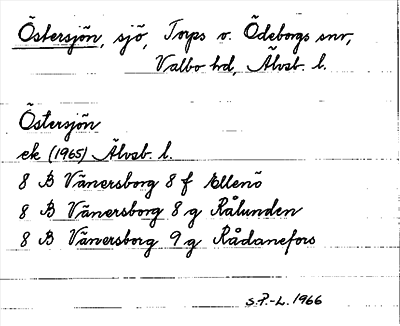 Östersjön, sjö, Torps o. Ödeborgs snr,
Valbo hd, Älvsb. l.
Östersjön
ek (1965) Älvsb. l.
8 B Vänersborg 8 f Ellenö
8 B Vänersborg 8 g Rålunden
8 B Vänersborg 9 g Rådanefors
S.P.-L. 1966